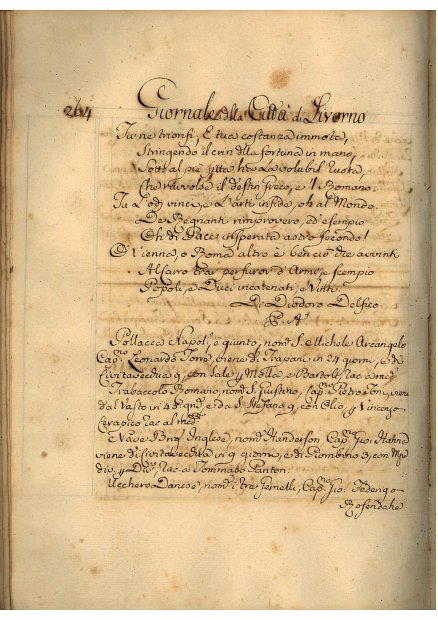 264 Giornale della Città di Livorno
Tu ne trionfi, E tua costanza immota,
Stringendo il crin alla fortuna in mano,
Sott'al piè fitta ha La volubil ruota,
Che ravvolse il destin Greco, e 'l Romano.
Tu L'odj vinci, e L'arti infide, oh al Mondo
De Regnanti rimprovero, ed esempio
Oh di Pace insperata astro fecondo!
O Vienna, o Roma altro è ben ciò che avvinti
Al Carro trar per furor d'Armi, e scempio
Popoli, e Duci incatenati, e Vinti.
Di Diodoro Delfico
P. A
Pollacca Napol. è giunto, nomª S. Michele Arcangelo
Capno Leonardo Torre, viene di Trapani in 24 giorni, e di
Civitavecchia 9, con Sale p Mella, e Bartoli, rac. a med
Trabaccolo Romano, nomª S. Giustino, Capno Pietro Foni, viene
dal Vasto in 45 gni, e da S. Stefano 9, con Olio, p Vincenzo
Cerapico rac. al medmo
Nave Brig. Inglese, nomª Handerson, Capno Gio: Hanna
viene di Civitavecchia in 9 giorni, e di Piombino 3, con
div. p Divi, rac. a Tommaso Panton.
Ucchero Danese, nomª i tre Gemelli, Capno Gio. Federigo
Rosendahe